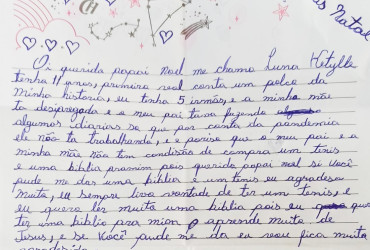 Feliz Natal
Oi querida papai noel me chamo Luna Hetylla
tenho 11 anos, primeiro noel conta um polco da
minha historia, eu tenho 5 irmãos, e a minha mãe
ta desipregada e o meu pai tava fazendo
algumas diarias so que por conta da pandemia
eli não ta trabalhando, e e porise que o meu pai e a
minha mãe não tem condisões de compara um tenis
e uma biblia pramim pois querida papai noel si você
pude me das uma biblia e um tenis eu agradeso
muito, eu sempre tive vontade de ter um tenis, e
eu quero ter muito uma biblia pois eu quero
ter uma biblia para mim aprende muito de
Jesus, e se você pude me da eu vou fica muito
agradesida